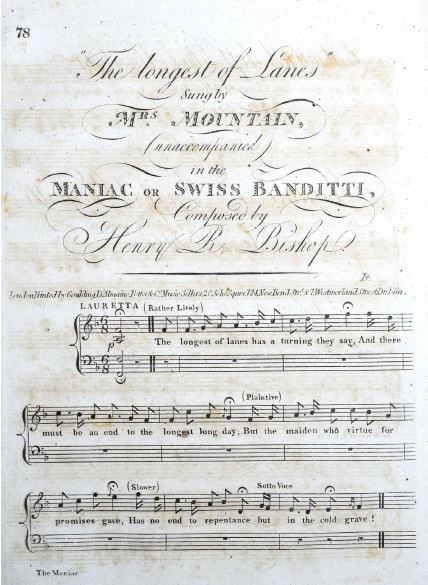 78
"The longest of Lanes"
Sung by
MRS. MOUNTAIN,
(unaccompanied)
in the
MANIAC OR SWISS BANDITTI,
Composed by
Henry R. Bishop
London Printed by Goulding D'Almaine Potter & Co. Music Sellers 20 Soho Square 124 New Bond Strt. & 7 Westmorland Street Dublin.
LAURETTA (Rather Lively)
The longest of lanes has a turning they say, And there
(Plaintive)
must be an end to the longest long day; But the maiden who virtue for
(Slower) Sotto Voce
promises gave, Has no end to repentance but in the cold grave!
The Maniac